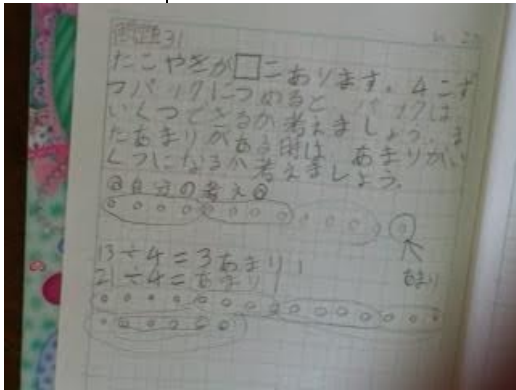 問題31
たこやきが□こあります。4こず
つパックにつめると、パックは
いくつできるか考えましょう。ま
たあまりがある時は、あまりがい
くつになるか考えましょう。
◎自分の考え◎
13÷4=3あまり1
21÷4=あまり1
あまり